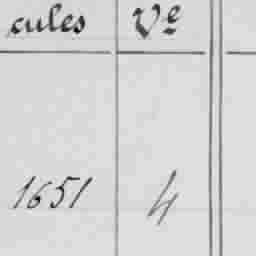 cules Ve
1651 4